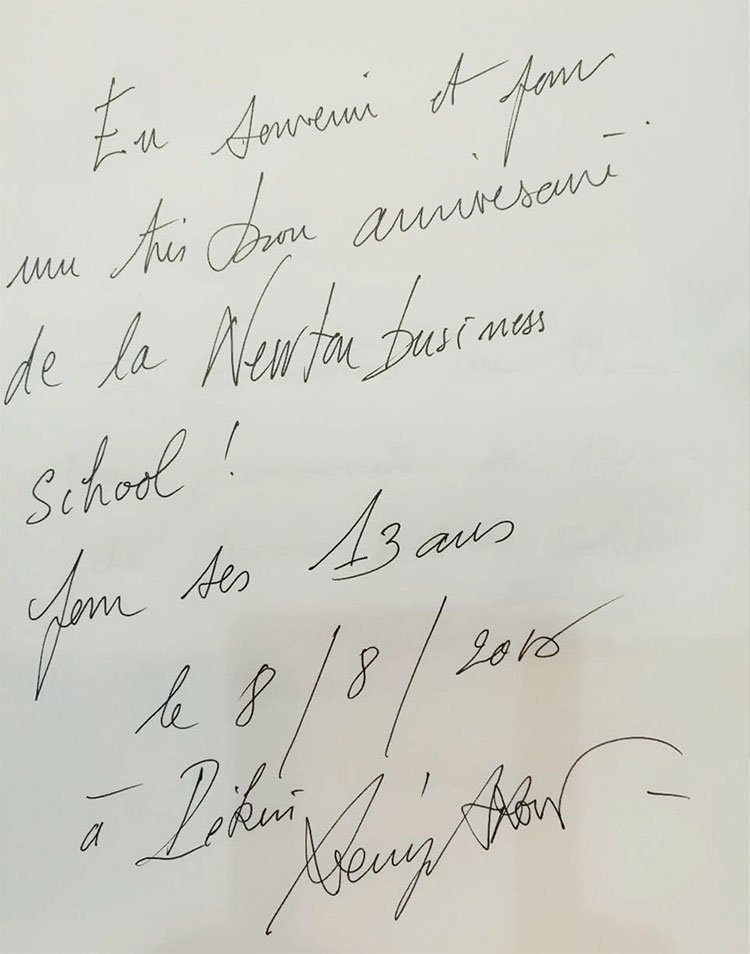 En souvenir et pour
un très bon anniversaire
de la Newton business
school !
pour ses 13 ans
le 8/8/2018
à Pékin